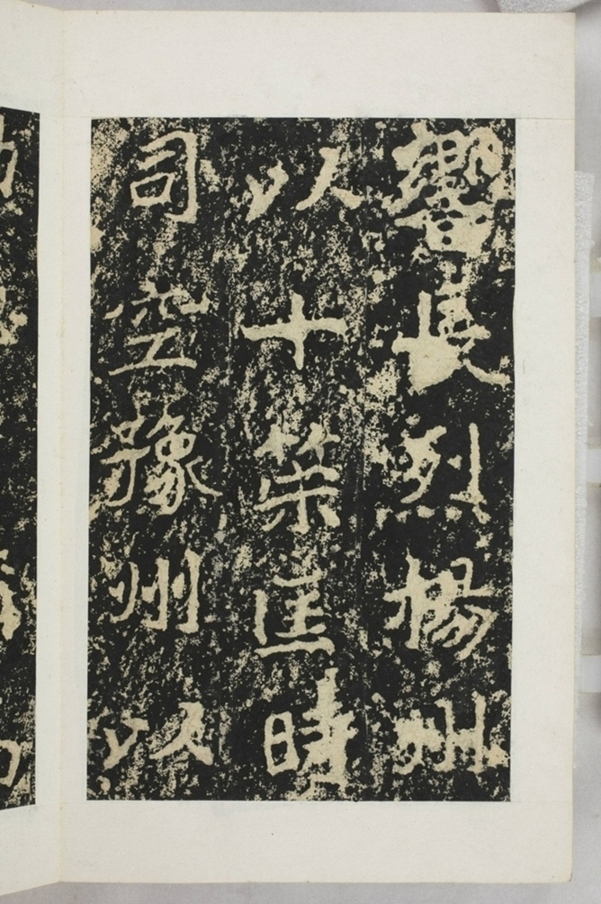 響長烈楊州
以十策匡時
司空豫州以